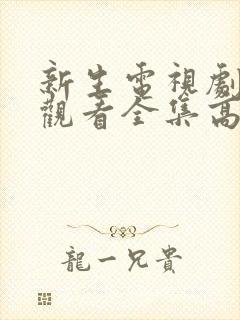 新生電視劇
觀看全集高
龍一兄貴